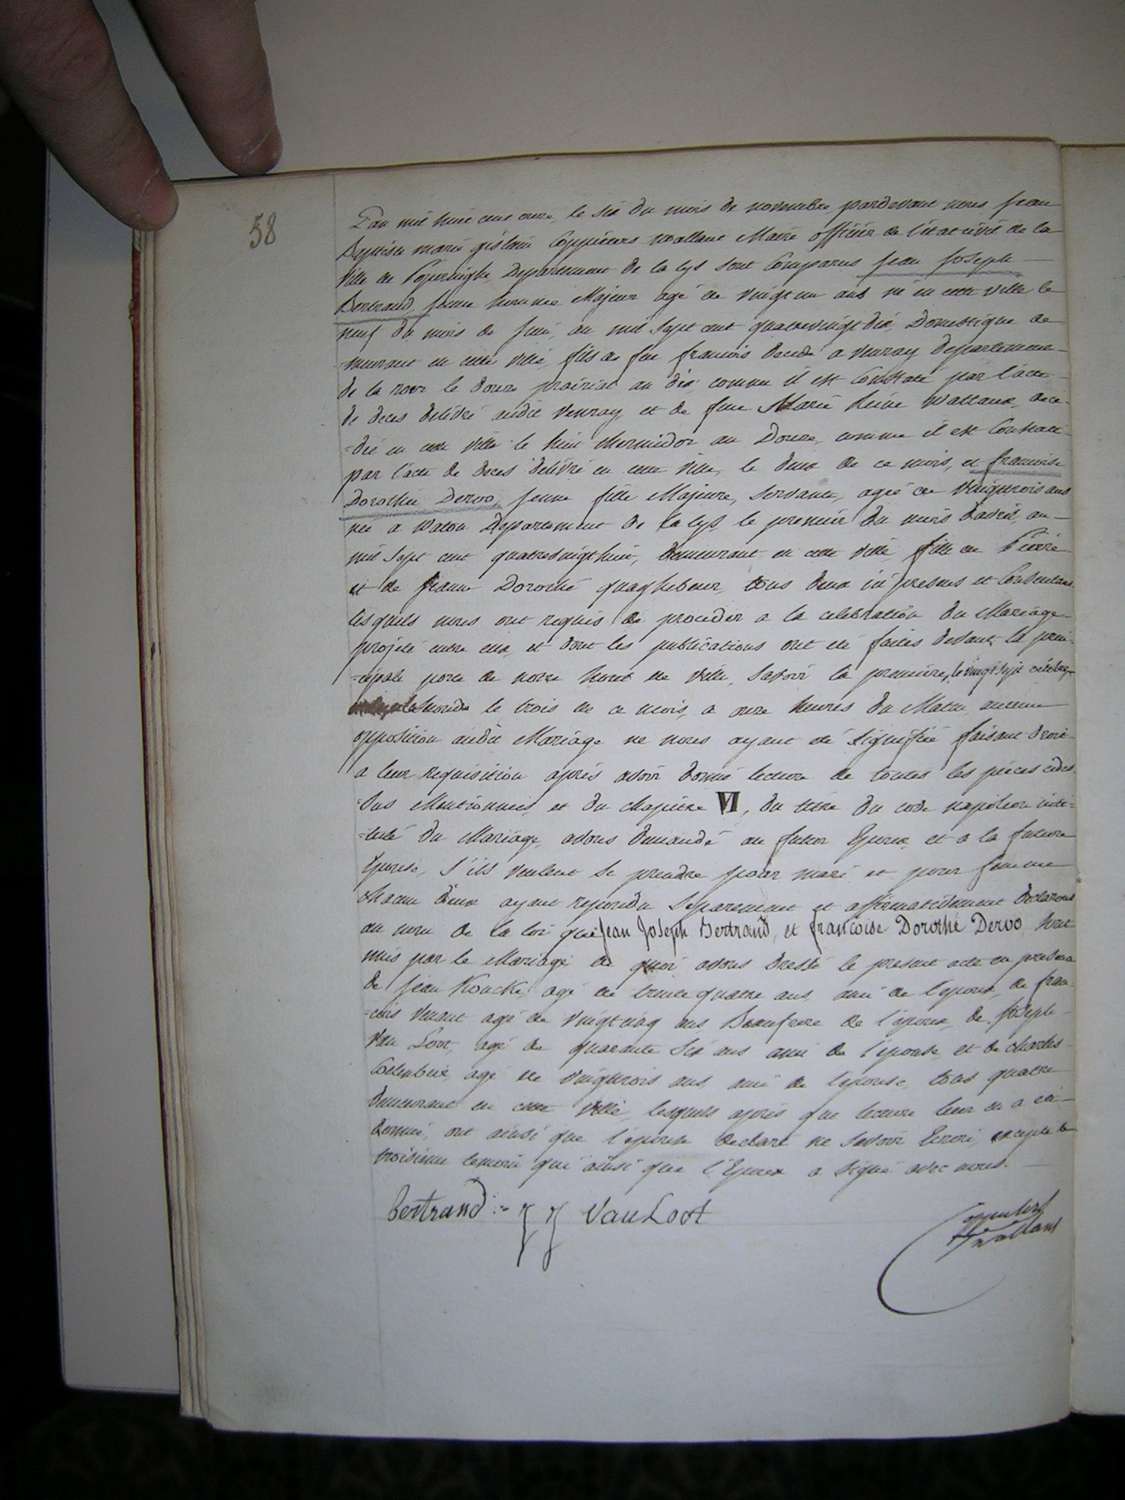 58
L'an mil huit cent onze, le six du mois de novembre pardevant nous Jean
Baptiste marie gislain Coppieters wallant Maire officier de l'état civil de la
Ville de Poperinghe Departement de la Lys sont Comparus Jean Joseph
Bertrand, jeune homme Majeur agé de vingt un ans né en cette ville le
neuf du mois de juin, an mil sept cent quatrevingt dix, Domestique de
-meurant en cette ville, fils de feu francois decedé a departement
de la le douze prairial an dix comme il est Constaté par l'acte
de deces délivré audit et de feue Marie Reine Wallaux, dece-
-dée en cette ville le huit thermidor an Douze, comme il est Constaté
par l'acte de deces délivré en cette ville, le deux de ce mois, et francoise
Dorothée Dervo, jeune fille Majeure, Servante, agée de vingt trois ans
née a Watou Departement de la Lys le premier du mois d'avril, an
mil sept cent quatrevingt huit, demeurant en cette ville fille de Pierre
et de Jeanne Dorothé quaghebeur, tous deux ici presens et Consentans
lesquels nous ont requis de proceder a la celebration du Mariage
projeté entre eux, et dont les publications ont été faites devant la prin-
-cipale porte de notre hotel de ville, Savoir la premiere, le vingt sept octobre
la seconde le trois de ce mois, a onze heures du Matin, aucune
opposition audit Mariage ne nous ayant été signifiée faisant droit
a leur requisition après avoir donné lecture de toutes les pieces cides-
-sus Mentionnées, et du chapitre VI, du titre du code napoléon inti-
-tulé du Mariage, avons demandé au futur Epoux, et a la future
Epouse, s'ils veulent se prendre pour mari et pour femme
chacun d'eux ayant repondu Séparement et affirmativement declarons
au nom de la loi que Jean Joseph Bertrand, et francoise Dorothé Dervo sont
unis par le Mariage de quoi avons dressé le present acte en presence
de Jean Koucke agé de trente quatre ans ami de l'epoux, de fran-
-cois agé de vingt cinq ans Beaufrere de l'epoux, de Joseph
Van Loot, agé de quarante six ans ami de l'épouse, et de charles
agé de vingt trois ans ami de l'epouse, tous quatre
demeurant en cette ville, lesquels après que lecture leur en a été
donné, ont ainsi que l'épouse declaré ne savoir Ecrire, excepté le
troisieme temoin qui ainsi que l'Epoux a Signé avec nous.
Bertrand JJ Van Loot
Coppieters
wallant